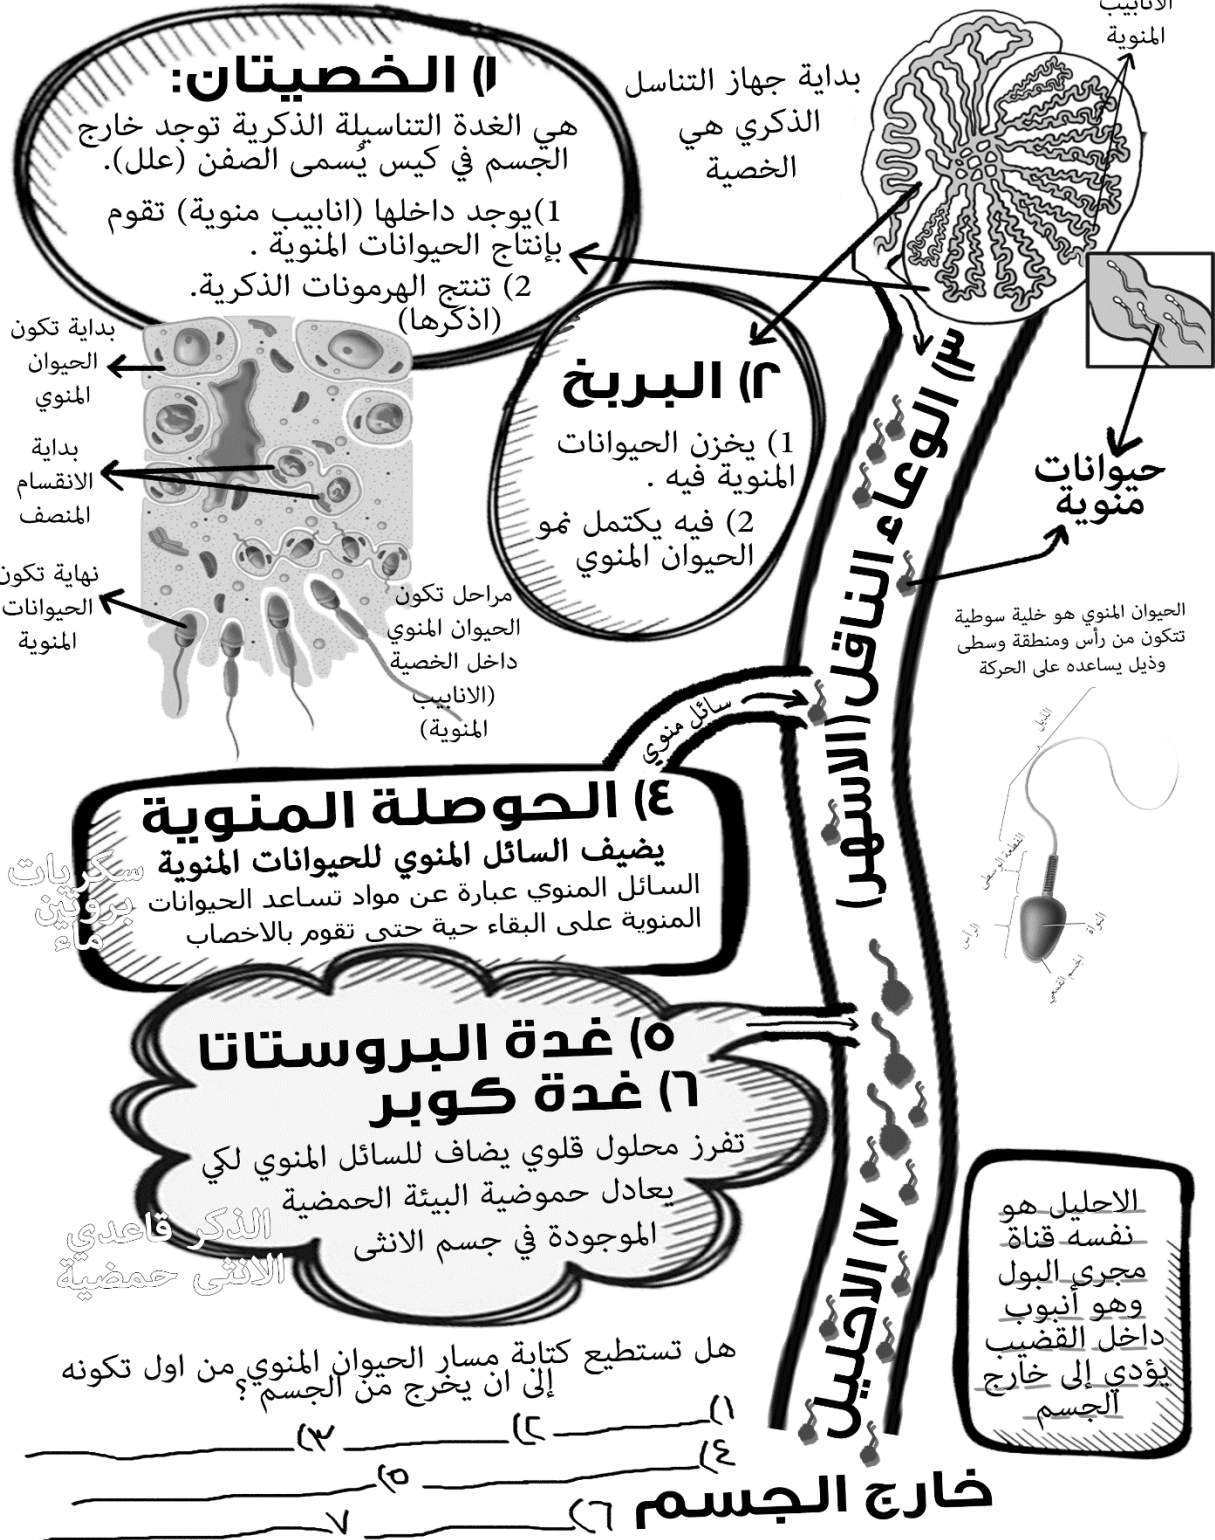 الانابيب
المنوية
بداية جهاز التناسل
الذكري هي
الخصية
١) الخصيتان:
هي الغدة التناسيلة الذكرية توجد خارج
الجسم في كيس يُسمى الصفن (علل).
1)يوجد داخلها (انابيب منوية) تقوم
بإنتاج الحيوانات المنوية .
2) تنتج الهرمونات الذكرية.
(اذكرها)
بداية تكون
الحيوان
المنوي
بداية
الانقسام
المنصف
نهاية تكون
الحيوانات
المنوية
مراحل تكون
الحيوان المنوي
داخل الخصية
(الانابيب
المنوية)
٢) البربخ
1) يخزن الحيوانات
المنوية فيه .
2) فيه يكتمل نمو
الحيوان المنوي
٣) الوعاء الناقل (الاسهر)
حيوانات
منوية
الحيوان المنوي هو خلية سوطية
تتكون من رأس ومنطقة وسطى
وذيل يساعده على الحركة
الذيل
القطعة الوسطى
الرأس
النواة
الجسم القمعي
سائل منوي
٤) الحوصلة المنوية
يضيف السائل المنوي للحيوانات المنوية
السائل المنوي عبارة عن مواد تساعد الحيوانات
المنوية على البقاء حية حتى تقوم بالاخصاب
سكريات
بروتين
ماء
٥) غدة البروستاتا
٦) غدة كوبر
تفرز محلول قلوي يضاف للسائل المنوي لكي
يعادل حموضية البيئة الحمضية
الموجودة في جسم الانثى
الذكر قاعدي
الانثى حمضية
٧) الاحليل
الاحليل هو
نفسه قناة
مجرى البول
وهو أنبوب
داخل القضيب
يؤدي إلى خارج
الجسم
هل تستطيع كتابة مسار الحيوان المنوي من اول تكونه
إلى ان يخرج من الجسم ؟
١) ٢) ٣)
٤) ٥)
٦) ٧
خارج الجسم